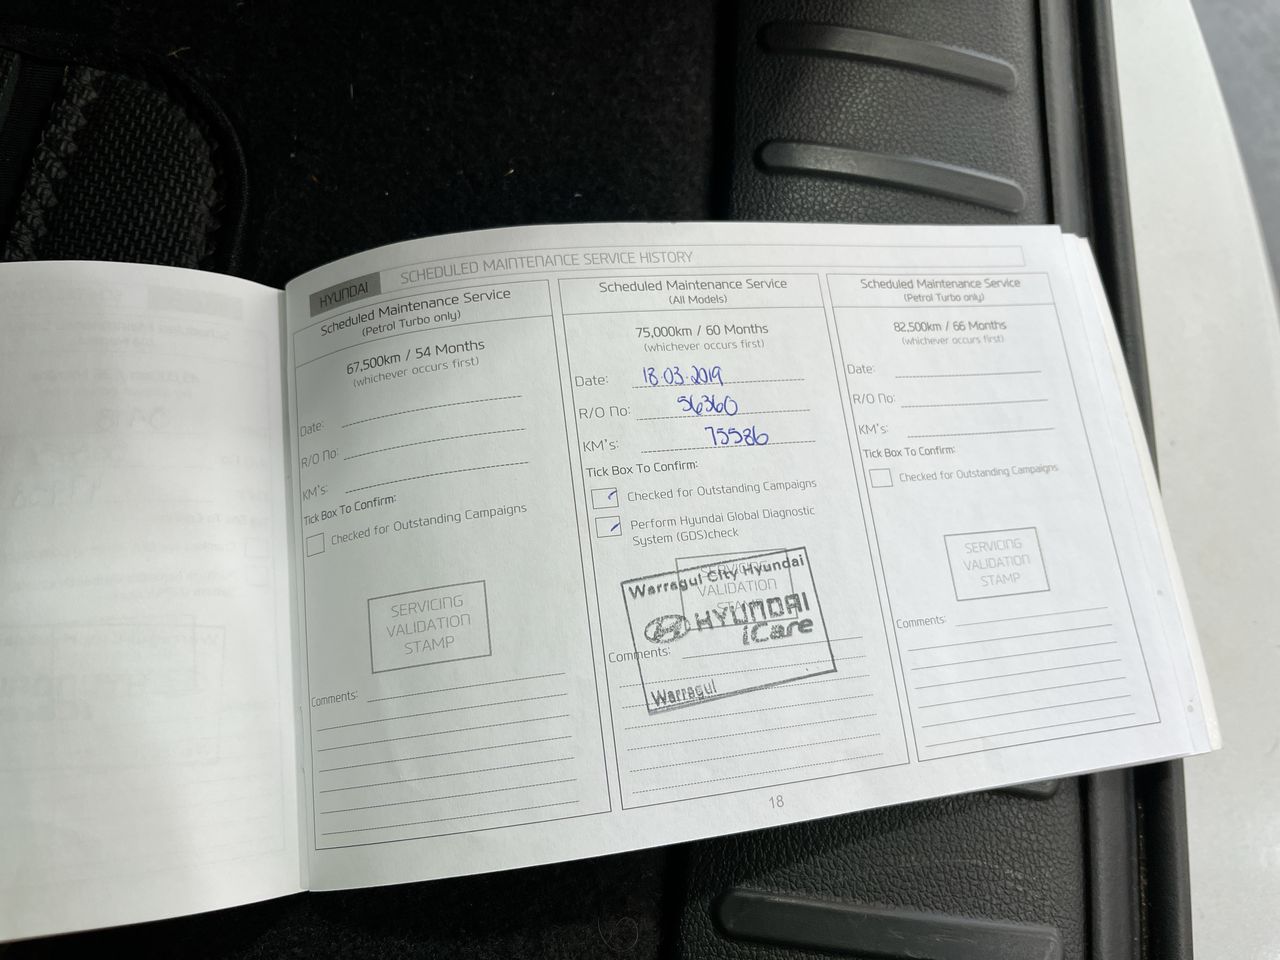 HYUNDAI
SCHEDULED MAINTENANCE SERVICE HISTORY
Scheduled Maintenance Service
(Petrol Turbo only)
67,500km / 54 Months
(whichever occurs first)
Date:
R/O No:
KM's:
Tick Box To Confirm:
Checked for Outstanding Campaigns
SERVICING
VALIDATION
STAMP
Comments:
Scheduled Maintenance Service
(All Models)
75,000km / 60 Months
(whichever occurs first)
Date: 18.03.2019
R/O No: 56360
KM's: 75586
Tick Box To Confirm:
Checked for Outstanding Campaigns
Perform Hyundai Global Diagnostic
System (GDS)check
SERVICING
VALIDATION
STAMP
Warragul City Hyundai
HYUNDAI
iCare
Comments:
Warragul
Scheduled Maintenance Service
(Petrol Turbo only)
82,500km / 66 Months
(whichever occurs first)
Date:
R/O No:
KM's:
Tick Box To Confirm:
Checked for Outstanding Campaigns
SERVICING
VALIDATION
STAMP
Comments:
18